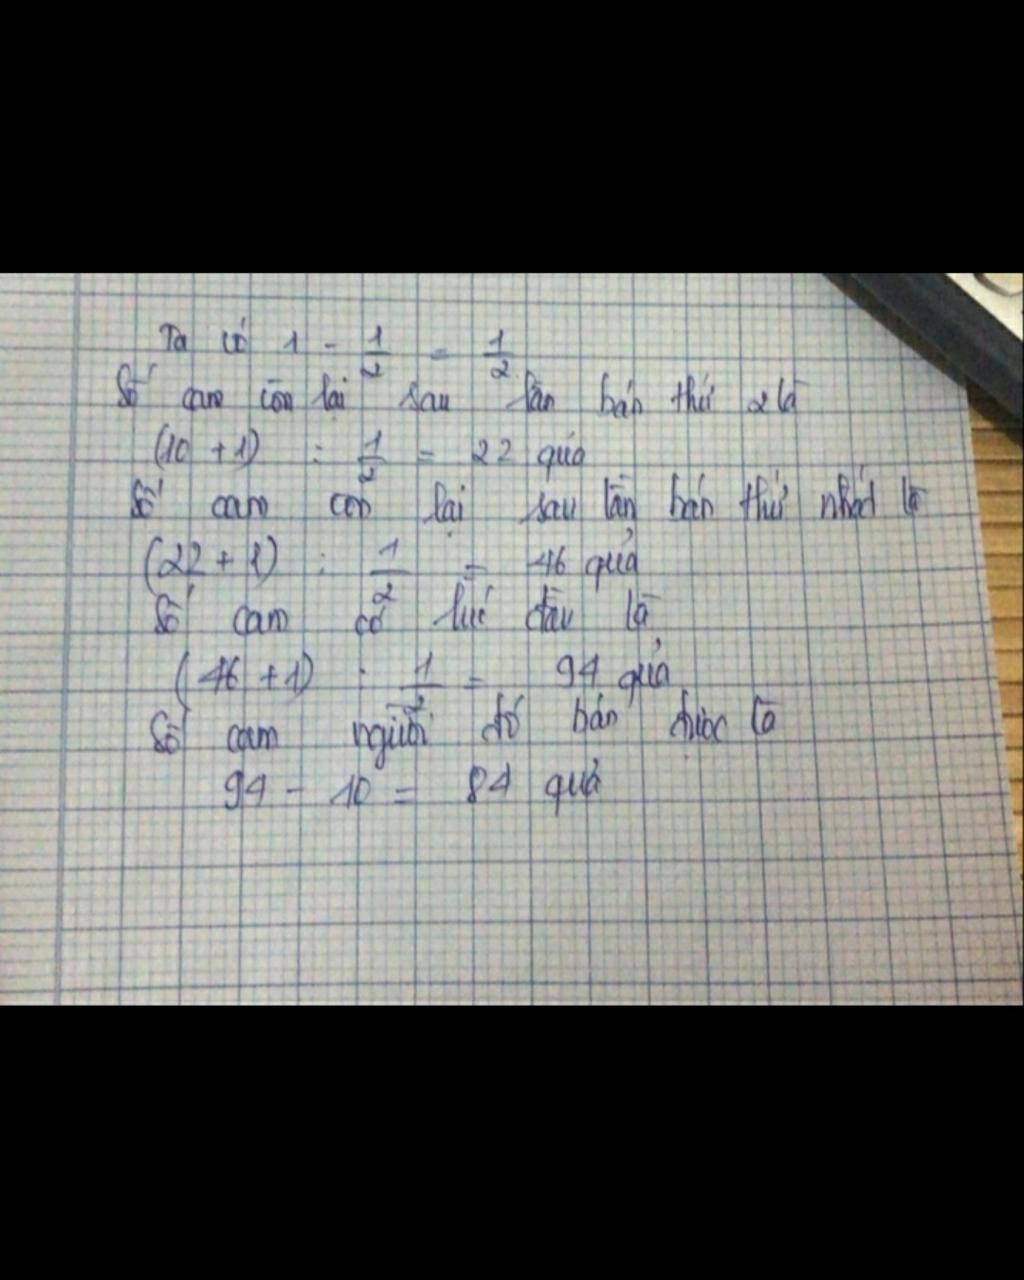 Ta có 1 - 1/2 = 1/2
Số cam còn lại sau lần bán thứ 2 là
(10 + 1) : 1/2 = 22 quả
Số cam còn lại sau lần bán thứ nhất là
(22 + 1) : 1/2 = 46 quả
Số cam có lúc đầu là
(46 + 1) : 1/2 = 94 quả
Số cam người đó bán được là
94 - 10 = 84 quả